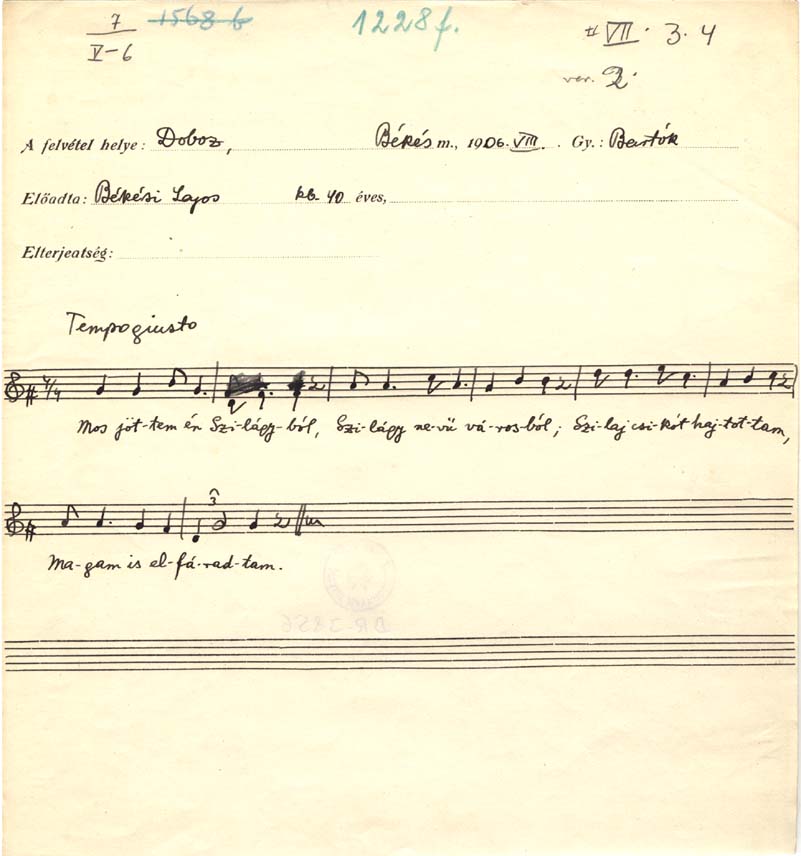 7 1568 b 1228f. # VII. 3. 4
V-6 ver. 2.
A felvétel helye: Doboz, Békés m., 1906. VIII. Gy.: Bartók
Előadta: Békési Lajos kb. 40 éves,
Elterjeatség:
Tempo giusto
4/4
Mos jöt-tem én Szi-lágy-ból, Szi-lágy ne-vü vá-ros-ból; Szi-laj csi-kót haj-tot-tam,
3
Ma-gam is el-fá-rad-tam.
DR-3856